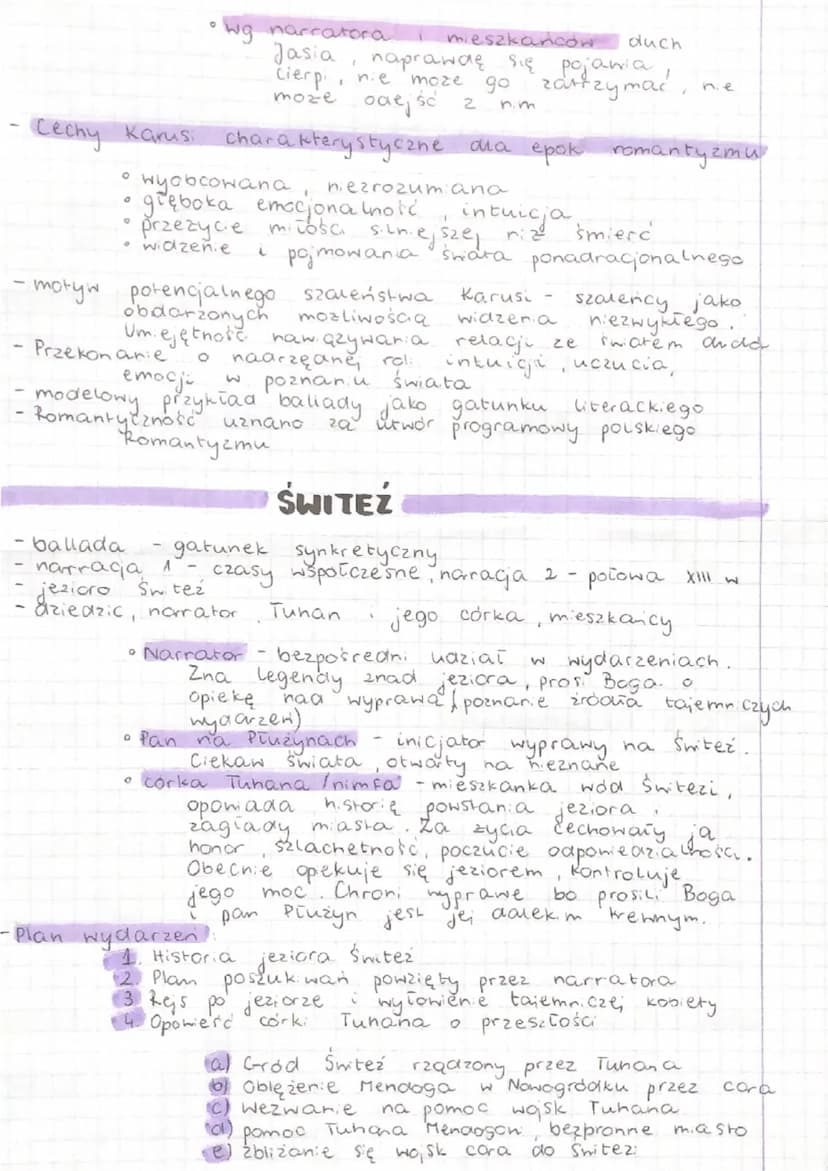 ° wg narratora i mieszkańców duch
Jasia, naprawdę się pojawia,
cierpi, nie może go zatrzymać, nie
może odejść z nim
- Cechy Karusi charakterystyczne dla epoki romantyzmu
° wyobcowana, niezrozumiana
° głęboka emocjonalność, intuicja
° przeżycie miłości silniejszej niż śmierć
° widzenie i pojmowania świata ponadracjonalnego
- motyw potencjalnego szaleństwa Karusi - szaleńcy jako
obdarzonych możliwością widzenia niezwykłego.
Umiejętność nawiązywania relacji ze światem
- Przekonanie o nadrzędnej roli intuicji, uczucia,
emocji w poznaniu świata
- modelowy przykład ballady jako gatunku literackiego
- Romantyczność uznano za utwór programowy polskiego
Romantyzmu
ŚWITEŹ
- ballada - gatunek synkretyczny
- narracja 1 - czasy współczesne, naracja 2 - połowa XIII w
- jezioro Świteź
- dziedzic, narrator, Tuhan i jego córka, mieszkańcy
° Narrator - bezpośredni udział w wydarzeniach.
Zna legendy znad jeziora, prosi Boga o
opiekę nad wyprawą (poznanie źródła tajemniczych
wydarzeń)
° Pan na Płużynach - inicjator wyprawy na Świteź.
Ciekaw świata, otwarty na nieznane
° córka Tuhana /nimfa - mieszkanka wód Świtezi,
opowiada historię powstania jeziora i
zagłady miasta. Za życia cechowały ją
honor, szlachetność, poczucie odpowiedzialności.
Obecnie opiekuje się jeziorem, kontroluje
jego moc. Chroni wyprawę bo prosili Boga
i pan Płużyn jest jej dalekim krewnym.
- Plan wydarzeń:
1. Historia jeziora Świteź
2. Plan poszukiwań powzięty przez narratora
3. Rejs po jeziorze i wyłonienie tajemniczej kobiety
4. Opowieść córki Tuhana o przeszłości
a) Gród Świteź rządzony przez Tuhana
b) Oblężenie Mendoga w Nowogródku przez cara
c) Wezwanie na pomoc wojsk Tuhana
d) pomoc Tuhana Mendogowi, bezbronne miasto
e) zbliżanie się wojsk cara do Świtezi